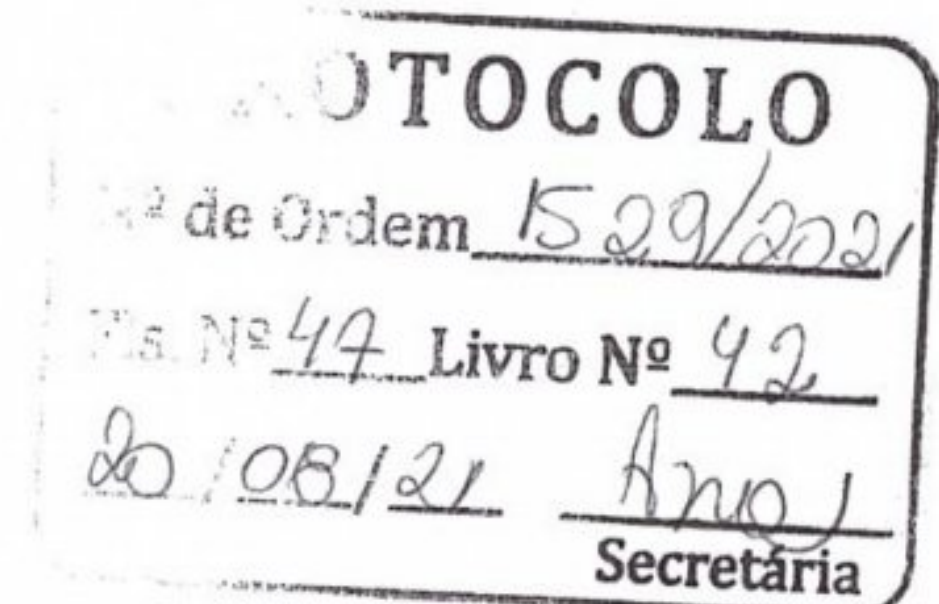 PROTOCOLO
Nº de Ordem 1529/2021
Fls. Nº 47 Livro Nº 42
20/08/21 Ana
Secretária